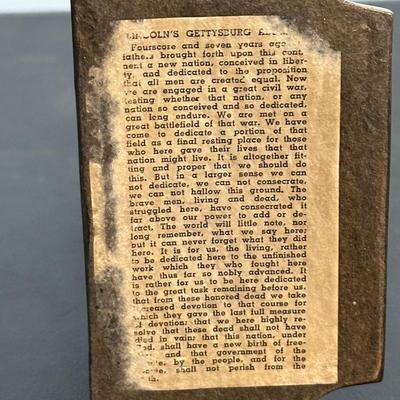 LINCOLN'S GETTYSBURG
Fourscore and seven years ago
fathers brought forth upon this cont
nent a new nation, conceived in liber-
ty, and dedicated to the proposition
that all men are created equal. Now
we are engaged in a great civil war,
testing whether that nation, or any
nation so conceived and so dedicated,
can long endure. We are met on a
great battlefield of that war. We have
come to dedicate a portion of that
field as a final resting place for those
who here gave their lives that that
nation might live. It is altogether fit-
ting and proper that we should do
this. But in a larger sense we can
not dedicate, we can not consecrate,
we can not hallow this ground. The
brave men, living and dead, who
struggled here, have consecrated it
far above our power to add or de-
tract. The world will little note, nor
long remember, what we say here;
but it can never forget what they did
here. It is for us, the living, rather
to be dedicated here to the unfinished
work which they who fought here
have thus far so nobly advanced. It
is rather for us to be here dedicated
to the great task remaining before us,
that from these honored dead we take
increased devotion to that course for
which they gave the last full measure
of devotion; that we here highly re-
solve that these dead shall not have
died in vain; that this nation, under
God, shall have a new birth of free-
and that government of the
by the people, and for the
shall not perish from the